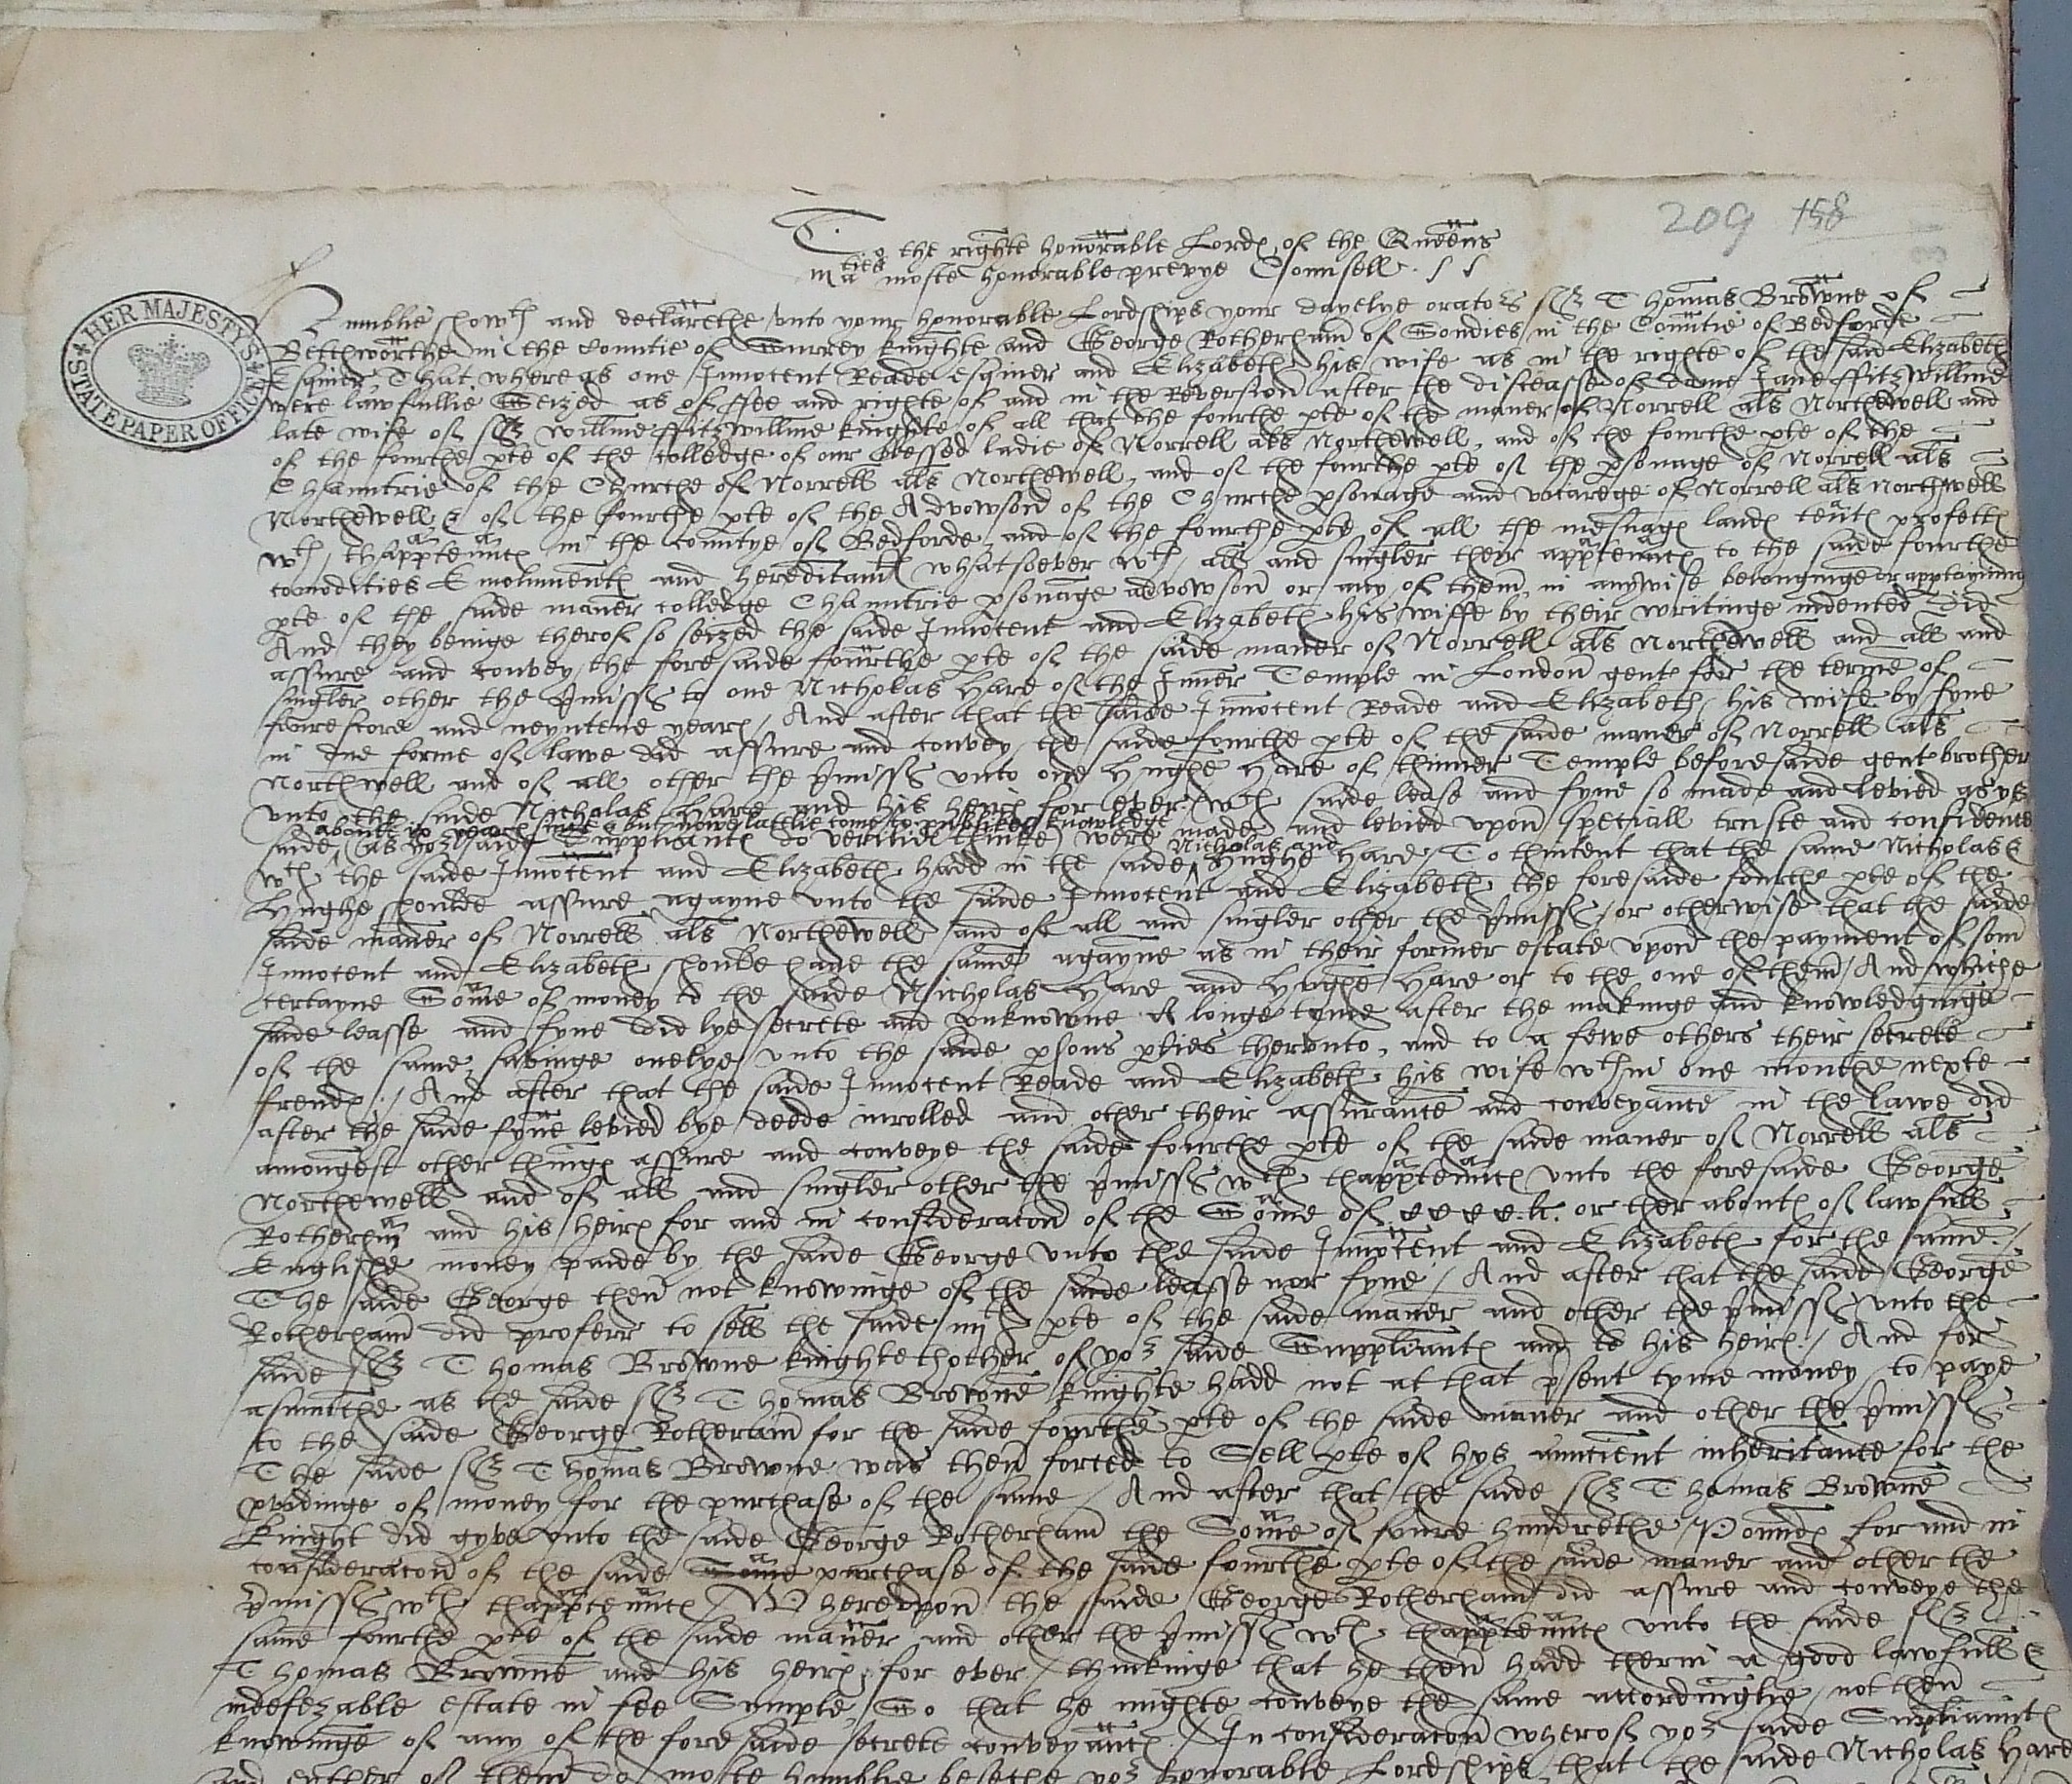 209 158
To the righte honorable Lordes of the Queens
maties moste honorable prevye Counsell
HER MAJESTY'S STATE PAPER OFFICE
Humblie showth and declarethe unto your honorable Lordships your dayelye orators Sr Thomas Browne of
Bettchworthe in the countie of Surrey knighte and George Rotherham of Sondies in the Countie of Bedforde
Esquier, That where as one Innocent Reade esquier and Elizabeth his wife as in the righte of the said Elizabeth
were lawfullie Seized as of ffee and righte of and in the Reversion after the disceasse of dame Jane ffitzwillme
late wife of Sr willme ffitzwillme knighte of all that the fourthe pte of the maner of Norrell als Northewell and
of the fourthe pte of the colledge of our blessed ladie of Norrell als Northewell, and of the fourthe pte of the
Chauntrie of the Churche of Norrell als Northewell, and of the fourthe pte of the psonage of Norrell als
Northewell & of the fourthe pte of the Advowson of the Churche psonage and vicarege of Norrell als Northewell
wth thappteunces in the countye of Bedforde, and of the fourthe pte of all the mesuages landes tentes profettes
comodities Emolumentes and hereditamtes whatsoever wth all and singler their appteunces to the saide fourthe
pte of the saide maner colledge Chauntrie psonage advowson or any of them in anywise belonginge or apptayning
And they beinge therof so seized the saide Innocent and Elizabeth his wiffe by their writinge indented did
assure and convey the foresaide fourthe pte of the saide maner of Norrell als Northewell and all and
singler other the pmisses to one Nicholas Hare of the Inner Temple in London gent for the terme of
fourescore and neyntene yeares, And after that the saide Innocent Reade and Elizabeth his wife by fyne
in due forme of lawe did assure and convey the saide fourthe pte of the saide maner of Norrell als
Northwell and of all other the pmisses unto one Hughe Hare of thinner Temple beforesaide gent brother
unto the saide Nicholas Hare and his heires for ever, wch saide lease and fyne so made and levied as ys
aboute ix yeares since & but nowe latelie come to publike knowledge
saide (as yor saide Suppliantes do verilie thinke) were made and levied upon speciall truste and confidence
Nicholas and
wch the saide Innocent and Elizabeth hadd in the saide Hughe Hare, To thintent that the same Nicholas &
Hughe shoulde assure agayne unto the saide Innocent and Elizabeth the foresaide fourthe pte of the
saide maner of Norrell als Northewell and of all and singler other the pmisses, or otherwise that the saide
Innocent and Elizabeth shoulde have the same agayne as in their former estate upon the payment of som
certayne Some of money to the saide Nicholas Hare and Hughe Hare or to the one of them, And whiche
saide leasse and fyne did lye secrete and unknowne A longe tyme after the makinge and knowledginge
of the same, savinge onelye unto the saide psons pties therunto, and to a fewe others their secrete
frendes, And after that the saide Innocent Reade and Elizabeth his wife wthin one monthe nexte
after the saide fyne levied bye deede inrolled and other their assurance and conveyance in the lawe did
amongest other thinges assure and conveye the saide fourthe pte of the saide maner of Norrell als
Northewell and of all and singler other the pmisses wth thappteunces unto the foresaide George
Rotherham and his heires for and in consideracon of the Some of cccc.li. or ther aboutes of lawfull
Englishe money paide by the saide George unto the saide Innocent and Elizabeth for the same.
The saide George then not knowinge of the saide leasse nor fyne, And after that the saide George
Rotherham did proferr to sell the saide iiijth pte of the saide maner and other the pmisses unto the
saide Sr Thomas Browne knighte thother of yor saide Suppliantes and to his heires, And for
asmutche as the saide Sr Thomas Browne knighte hadd not at that psent tyme money to paye
to the saide George Rotherham for the saide fourthe pte of the saide maner and other the pmisses
The saide Sr Thomas Browne was then forced to Sell pte of hys auncient inheritance for the
pvidinge of money for the purchase of the same, And after that the saide Sr Thomas Browne
knight did gyve unto the saide George Rotherham the Some of foure hundrethe Poundes for and in
consideracon of the saide Some purchase of the saide fourthe pte of the saide maner and other the
pmisses wth thappteunces, Wherevpon the saide George Rotherham did assure and conveye the
same fourthe pte of the saide maner and other the pmisses wth thappteunces unto the saide Sr
Thomas Browne and his heires for ever, thinkinge that he then hadd therin a good lawfull &
indefezable estate in fee Symple, So that he mighte conveye the same accordinglie, not then
knowinge of any of the foresaide secrete conveyaunces, In consideracon wherof yor saide Suppliauntes
and eyther of them do moste humblie beseche yor honorable Lordships that the saide Nicholas Hare